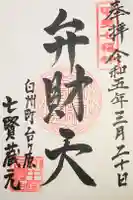 奉拝 令和五年三月二十日
弁財天
白州町台ヶ原
七賢蔵元